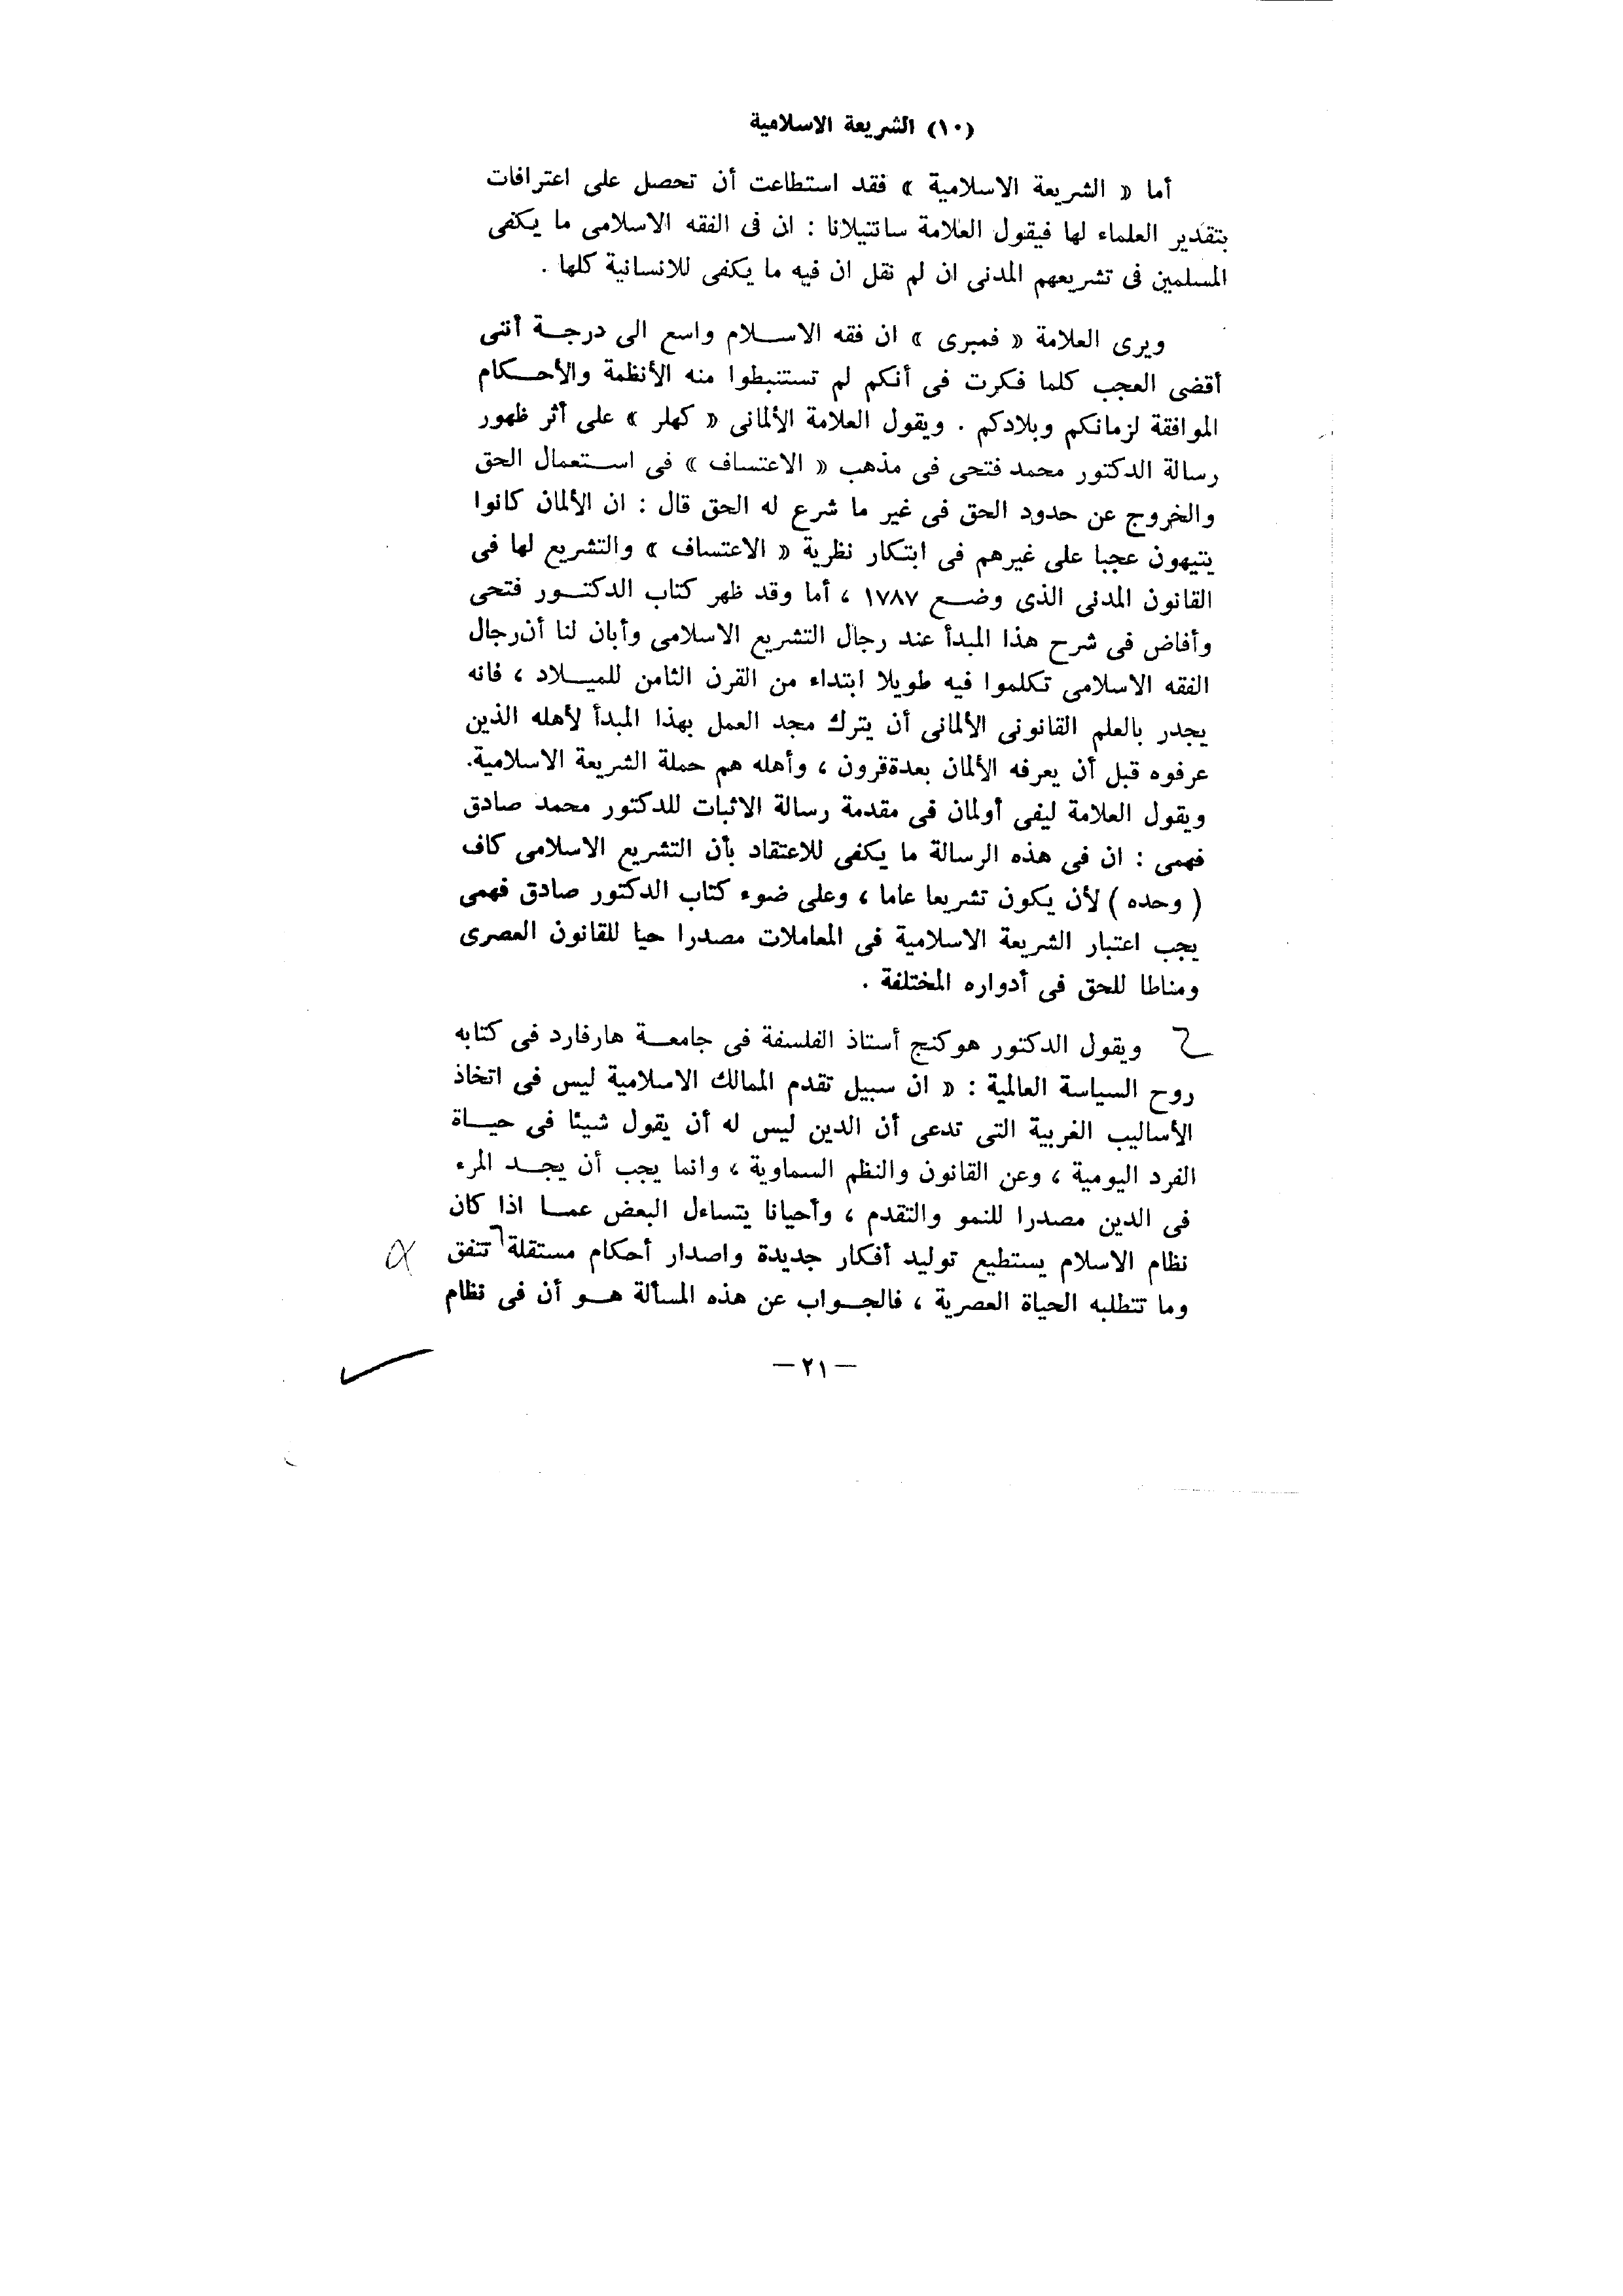 (١٠) الشريعة الاسلامية
أما « الشريعة الاسلامية » فقد استطاعت أن تحصل على اعترافات
بتقدير العلماء لها فيقول العلامة سانتيلانا : ان فى الفقه الاسلامى ما يكفى
المسلمين فى تشريعهم المدنى ان لم نقل ان فيه ما يكفى للانسانية كلها .
ويرى العلامة « فمبرى » ان فقه الاسلام واسع الى درجة أننى
أقضى العجب كلما فكرت فى أنكم لم تستنبطوا منه الأنظمة والأحكام
الموافقة لزمانكم وبلادكم . ويقول العلامة الألمانى « كهلر » على أثر ظهور
رسالة الدكتور محمد فتحى فى مذهب « الاعتساف » فى استعمال الحق
والخروج عن حدود الحق فى غير ما شرع له الحق قال : ان الألمان كانوا
يتيهون عجبا على غيرهم فى ابتكار نظرية « الاعتساف » والتشريع لها فى
القانون المدنى الذى وضع ١٧٨٧ ، أما وقد ظهر كتاب الدكتور فتحى
وأفاض فى شرح هذا المبدأ عند رجال التشريع الاسلامى وأبان لنا أن رجال
الفقه الاسلامى تكلموا فيه طويلا ابتداء من القرن الثامن للميلاد ، فانه
يجدر بالعلم القانونى الألمانى أن يترك مجد العمل بهذا المبدأ لأهله الذين
عرفوه قبل أن يعرفه الألمان بعدة قرون ، وأهله هم حملة الشريعة الاسلامية.
ويقول العلامة ليفى أولمان فى مقدمة رسالة الاثبات للدكتور محمد صادق
فهمى : ان فى هذه الرسالة ما يكفى للاعتقاد بأن التشريع الاسلامى كاف
( وحده ) لأن يكون تشريعا عاما ، وعلى ضوء كتاب الدكتور صادق فهمى
يجب اعتبار الشريعة الاسلامية فى المعاملات مصدرا حيا للقانون العصرى
ومناطا للحق فى أدواره المختلفة .
ويقول الدكتور هوكنج أستاذ الفلسفة فى جامعة هارفارد فى كتابه
روح السياسة العالمية : « ان سبيل تقدم الممالك الاسلامية ليس فى اتخاذ
الأساليب الغربية التى تدعى أن الدين ليس له أن يقول شيئا فى حياة
الفرد اليومية ، وعن القانون والنظم السماوية ، وانما يجب أن يجد المرء
فى الدين مصدرا للنمو والتقدم ، وأحيانا يتساءل البعض عما اذا كان
نظام الاسلام يستطيع توليد أفكار جديدة واصدار أحكام مستقلة تتفق
وما تتطلبه الحياة العصرية ، فالجواب عن هذه المسألة هو أن فى نظام
— ٢١ —